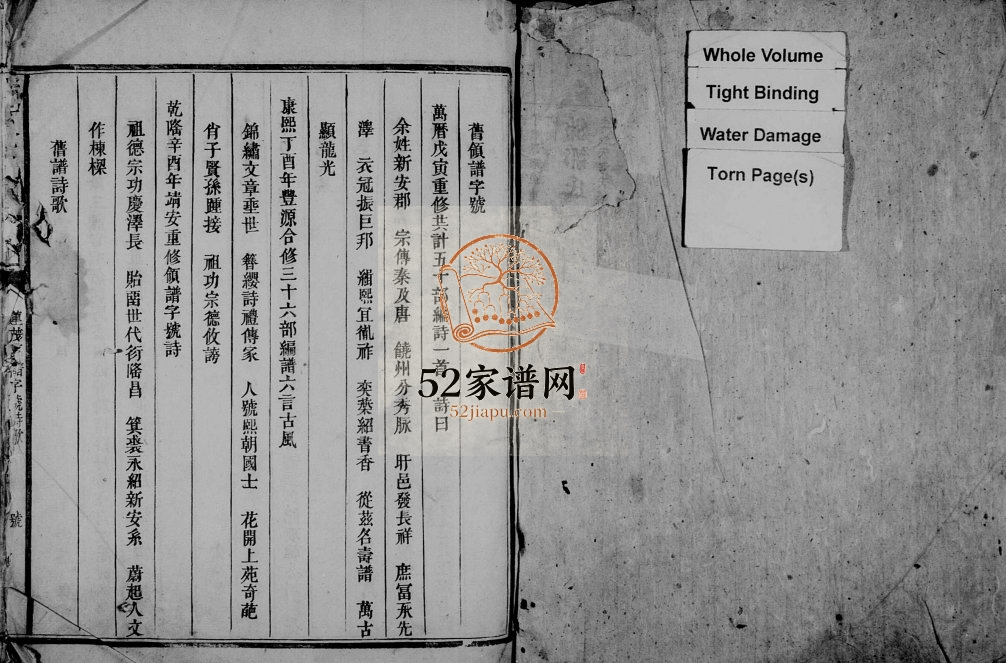 Whole Volume
Tight Binding
Water Damage
Torn Page(s)
舊領譜字號
萬曆戊寅重修共計五十部編詩一首 詩曰
余姓新安郡 宗傳秦及唐 饒州分秀脉 盱邑發長祥 庶富承先
澤 衣冠振巨邦 緝熙宜胤祚 奕葉紹書香 從茲名壽譜 萬古
顯龍光
康熙丁酉年豐源合修三十六部編譜六言古風
錦繡文章垂世 簪纓詩禮傳家 人號熙朝國士 花開上苑奇葩
肖子賢孫踵接 祖功宗德攸誇
乾隆辛酉年靖安重修領譜字號詩
祖德宗功慶澤長 貽畱世代衍隆昌 箕裘永紹新安系 蔚起人文
作棟樑
舊譜詩歌
字號詩歌
號
52家谱网
52jiapu.com